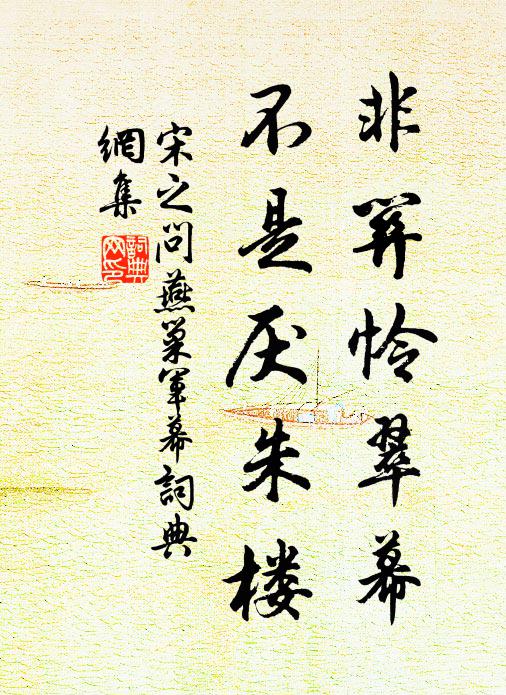 非关怜翠幕
不是厌朱楼
宋之问燕巢军幕詞典
網集
詞典网印